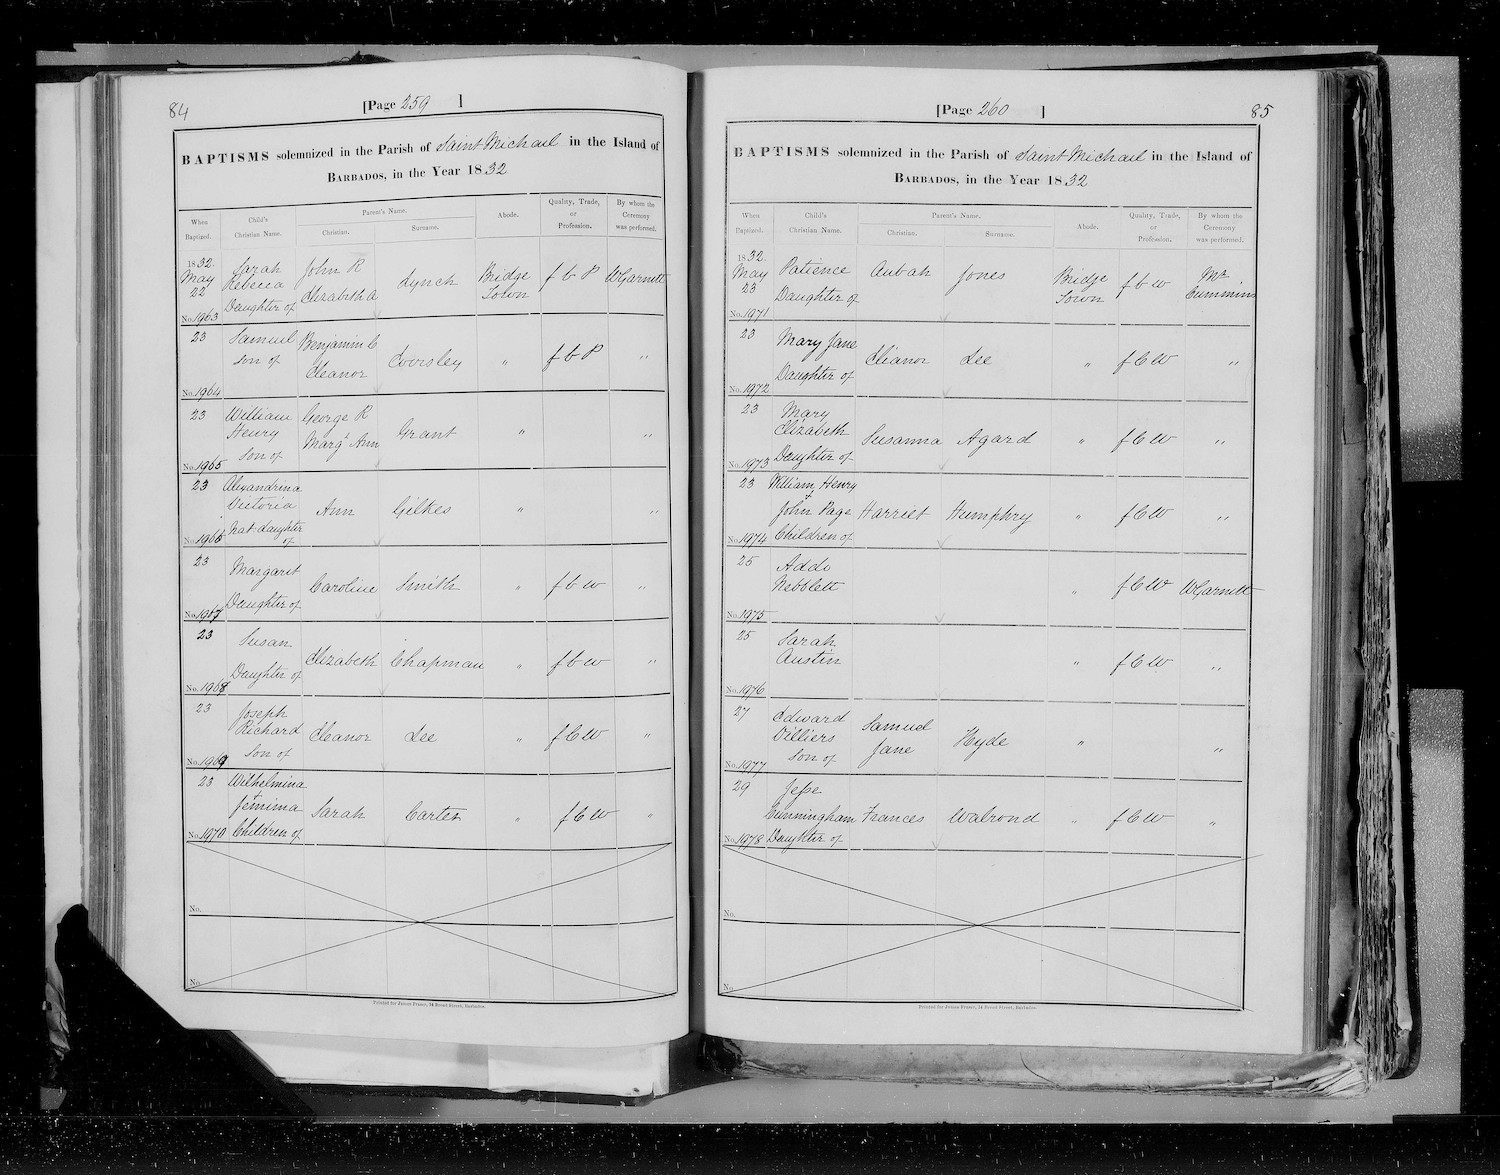 84
[Page 259 ]
BAPTISMS solemnized in the Parish of Saint Michael in the Island of
BARBADOS, in the Year 1832
When Baptized.
Child's Christian Name.
Parent's Name.
Christian.
Surname.
Abode.
Quality, Trade, or Profession.
By whom the Ceremony was performed.
1832. May 22 Sarah Rebecca Daughter of John R Elizabeth A Lynch Bridge Town f b P W Garnett
No. 1963
23 Samuel son of Benjamin C Eleanor Coorsley " f b P "
No. 1964
23 William Henry son of George R Margt Ann Grant " "
No. 1965
23 Alexandrina Victoria Nat daughter of Ann Gilkes " "
No. 1966
23 Margaret Daughter of Caroline Smith " f b w "
No. 1967
23 Susan Daughter of Elizabeth Chapman " f b w "
No. 1968
23 Joseph Richard son of Eleanor Lee " f C W "
No. 1969
23 Wilhelmina + Jemima Children of Sarah Carter " f C W "
No. 1970
No.
No.
Printed for James Fraser, 14 Broad Street, Barbados.
[Page 260 ]
85
BAPTISMS solemnized in the Parish of Saint Michael in the Island of
BARBADOS, in the Year 1832
When Baptized.
Child's Christian Name.
Parent's Name.
Christian.
Surname.
Abode.
Quality, Trade, or Profession.
By whom the Ceremony was performed.
1832. May 23 Patience Daughter of Aubah Jones Bridge Town f b w Mr Cummins
No. 1971
23 Mary Jane Daughter of Eleanor Lee " f C W "
No. 1972
23 Mary Elizabeth Daughter of Susanna Agard " f C W "
No. 1973
23 William Henry + John Page Children of Harriet Humphry " f C W "
No. 1974
25 Addo Nebblett " f C W W Garnett
No. 1975
25 Sarah Austin " f C W "
No. 1976
27 Edward Villiers son of Samuel Jane Hyde " "
No. 1977
29 Jesse Cunningham Daughter of Frances Walrond " f C W "
No. 1978
No.
No.
Printed for James Fraser, 14 Broad Street, Barbados.